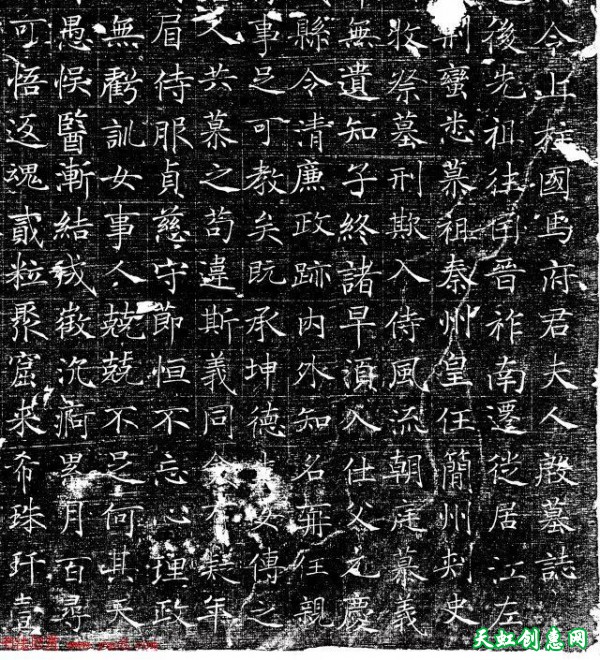 令上柱國馬府君夫人殷墓誌
後先祖往因晉祚南遷徙居江左
荊蠻悉慕祖秦州皇任簡州刺史
牧祭墓刑欺入侍風流朝庭慕義
無遺知子終諸早湏入仕父元慶
縣令清廉政跡內外知名弈任親
事足可教矣既承坤德女傳之
文共慕之苟違斯義同年
眉侍服貞慈守節恒不忘心理政
無虧訓女事人兢兢不足何其天
愚悞醫漸結伐徵沉痾累月百尋
可悟返魂貳粒聚窟來希珠玕壹
天虹创意网